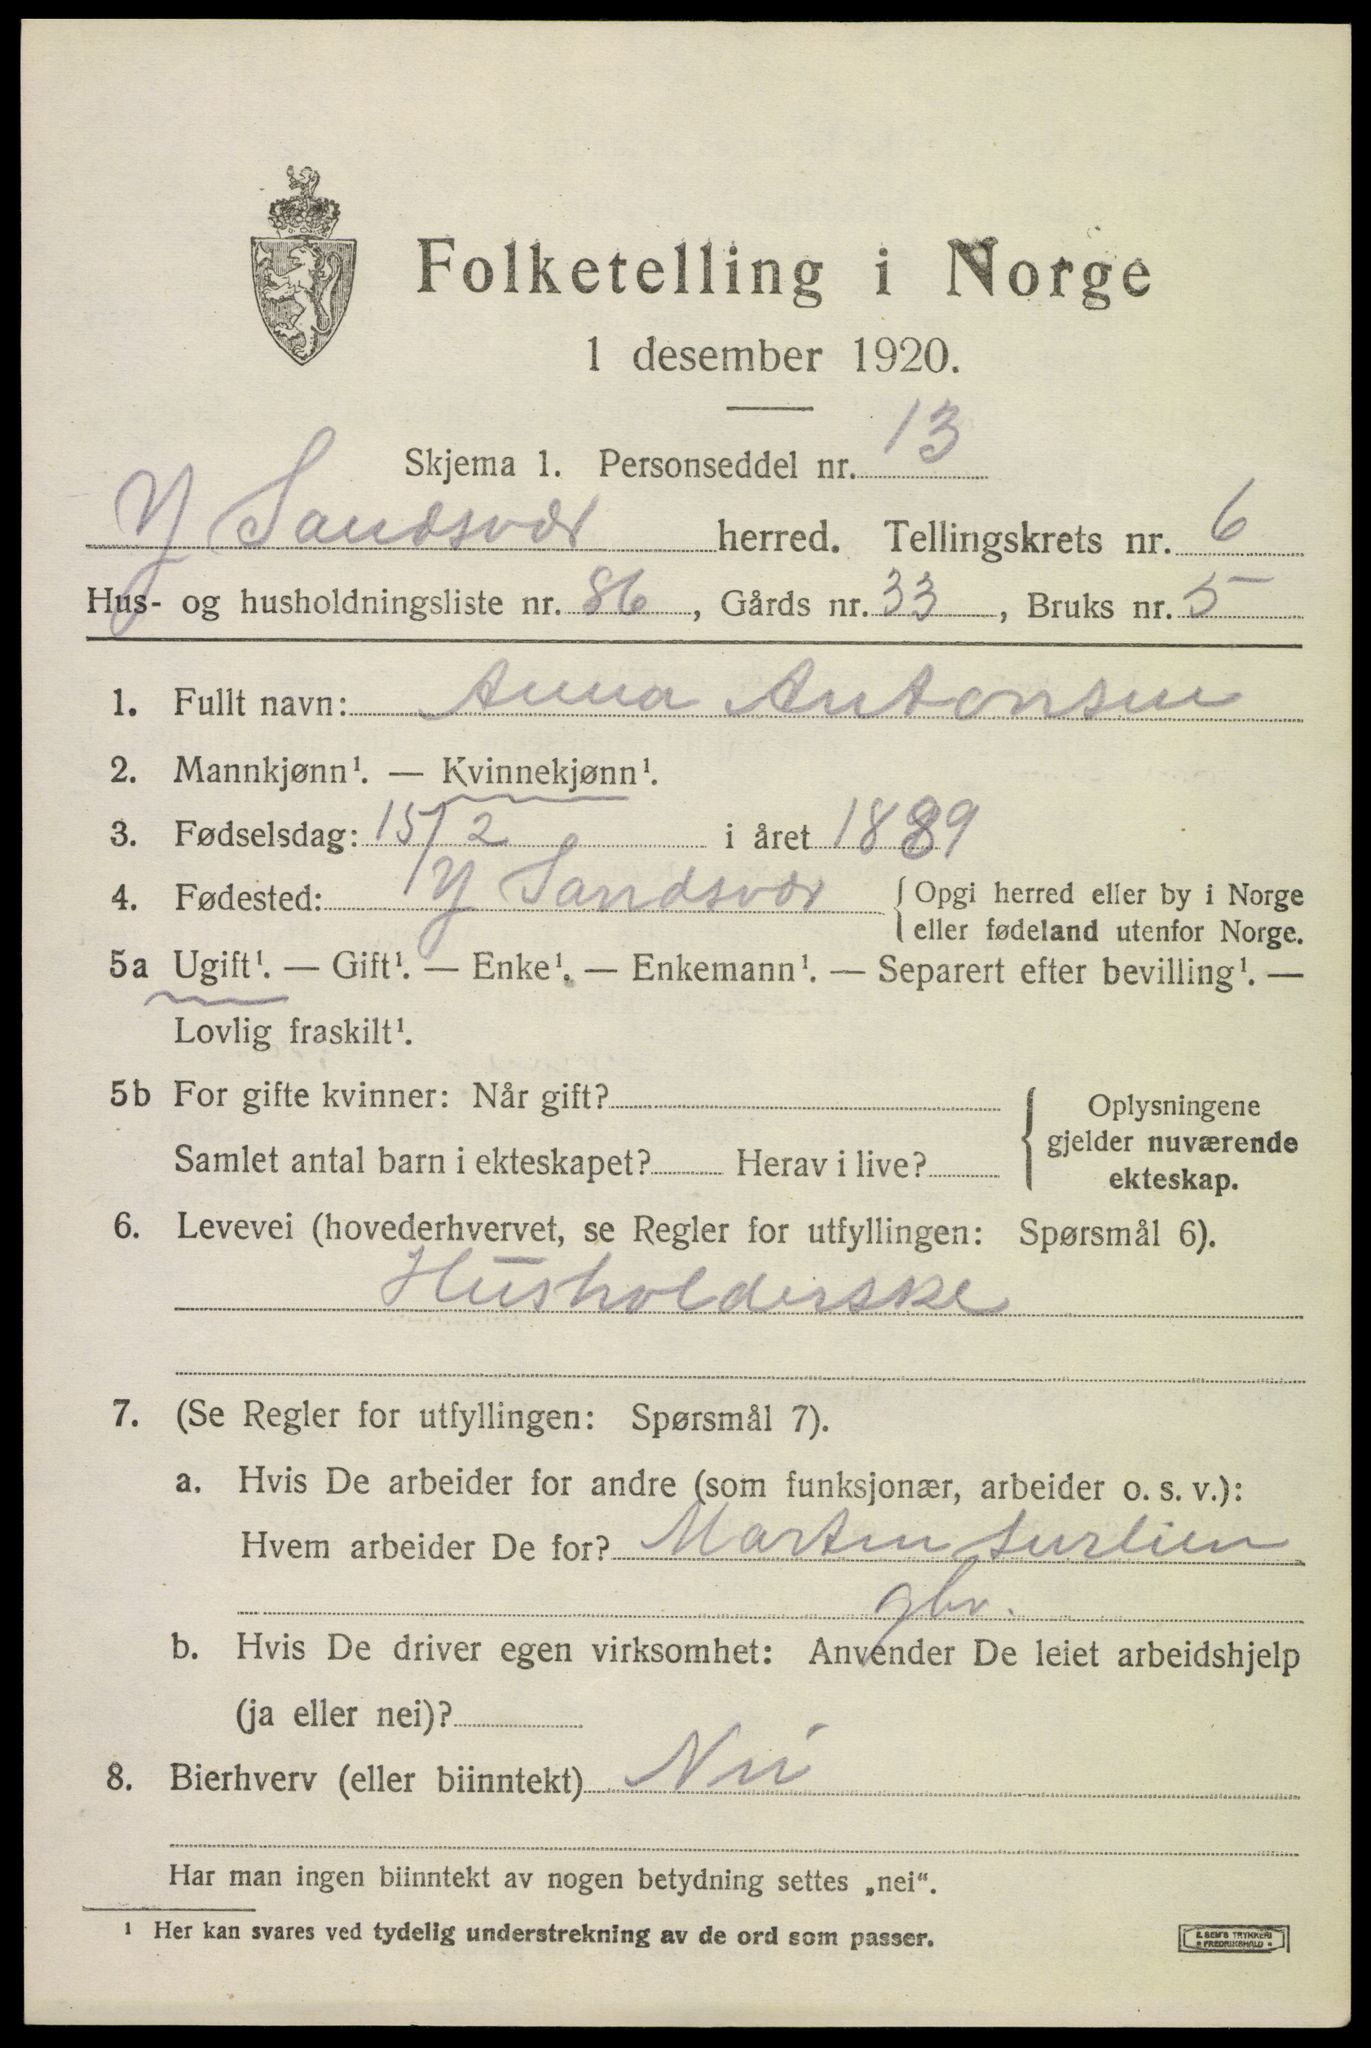 Folketelling i Norge
1 desember 1920.
Skjema 1. Personseddel nr. 13
Y Sandsvær herred. Tellingskrets nr. 6
Hus- og husholdningsliste nr. 86, Gårds nr. 33, Bruks nr. 5
1. Fullt navn: Anna Antonsen
2. Mannkjønn¹. — Kvinnekjønn¹.
3. Fødselsdag: 15/2 i året 1889
4. Fødested: Y Sandsvær { Opgi herred eller by i Norge
eller fødeland utenfor Norge.
5a Ugift¹. — Gift¹. — Enke¹. — Enkemann¹. — Separert efter bevilling¹. —
Lovlig fraskilt¹.
5b For gifte kvinner: Når gift?
Samlet antal barn i ekteskapet? Herav i live?
{ Oplysningene
gjelder nuværende
ekteskap.
6. Levevei (hovederhvervet, se Regler for utfyllingen: Spørsmål 6).
Husholderske
7. (Se Regler for utfyllingen: Spørsmål 7).
a. Hvis De arbeider for andre (som funksjonær, arbeider o. s. v.):
Hvem arbeider De for? Martin Surlien
gbr.
b. Hvis De driver egen virksomhet: Anvender De leiet arbeidshjelp
(ja eller nei)?
8. Bierhverv (eller biinntekt) Nei
Har man ingen biinntekt av nogen betydning settes „nei“.
¹ Her kan svares ved tydelig understrekning av de ord som passer.
E. SEM'S TRYKKERI
FREDRIKSHALD